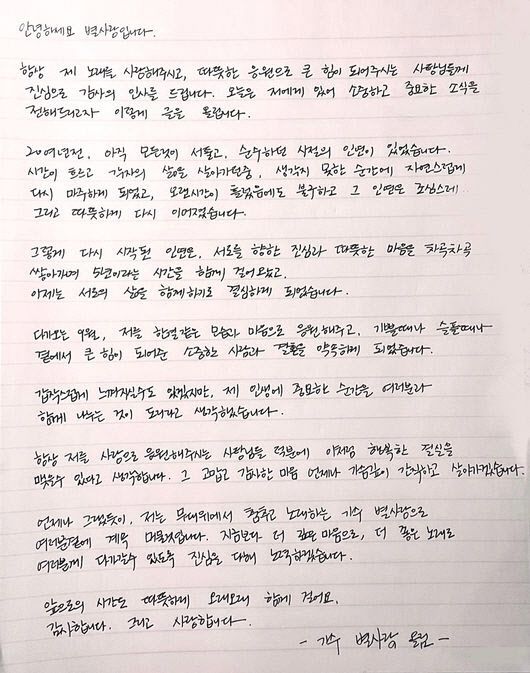 안녕하세요 별사랑입니다.
항상 제 노래를 사랑해주시고, 따뜻한 응원으로 큰 힘이 되어주시는 사랑님들께
진심으로 감사의 인사를 드립니다. 오늘은 저에게 있어 소중하고 중요한 소식을
전해드리고자 이렇게 글을 올립니다.
20여년전, 아직 모든것이 서툴고, 순수하던 시절의 인연이 있었습니다.
시간이 흐르고 각자의 삶을 살아가던중, 생각지 못한 순간에 자연스럽게
다시 마주하게 되었고, 오랜시간이 흘렀음에도 불구하고 그 인연은 조심스레..
그리고 따뜻하게 다시 이어졌습니다.
그렇게 다시 시작된 인연은, 서로를 향한 진심과 따뜻한 마음을 차곡차곡
쌓아가며 5년이라는 시간을 함께 걸어왔고,
이제는 서로의 삶을 함께하기로 결심하게 되었습니다.
다가오는 9월, 저를 한결같은 모습과 마음으로 응원해주고, 기쁠때나 슬플때나
곁에서 큰 힘이 되어준 소중한 사람과 결혼을 약속하게 되었습니다.
갑작스럽게 느껴지실수도 있겠지만, 제 인생에 중요한 순간을 여러분과
함께 나누는 것이 도리라고 생각하였습니다.
항상 저를 사랑으로 응원해주시는 사랑님들 덕분에 이처럼 행복한 결실을
맺을수 있다고 생각합니다. 그 고맙고 감사한 마음 언제나 가슴깊이 간직하고 살아가겠습니다.
언제나 그랬듯이, 저는 무대위에서 춤추고 노래하는 가수 별사랑으로
여러분곁에 계속 머물겠습니다. 지금보다 더 깊은 마음으로, 더 좋은 노래로
여러분께 다가갈수 있도록 진심을 다해 노력하겠습니다.
앞으로의 시간도 따뜻하게 오래오래 함께 걸어요.
감사합니다. 그리고 사랑합니다.
- 가수 별사랑 올림 -